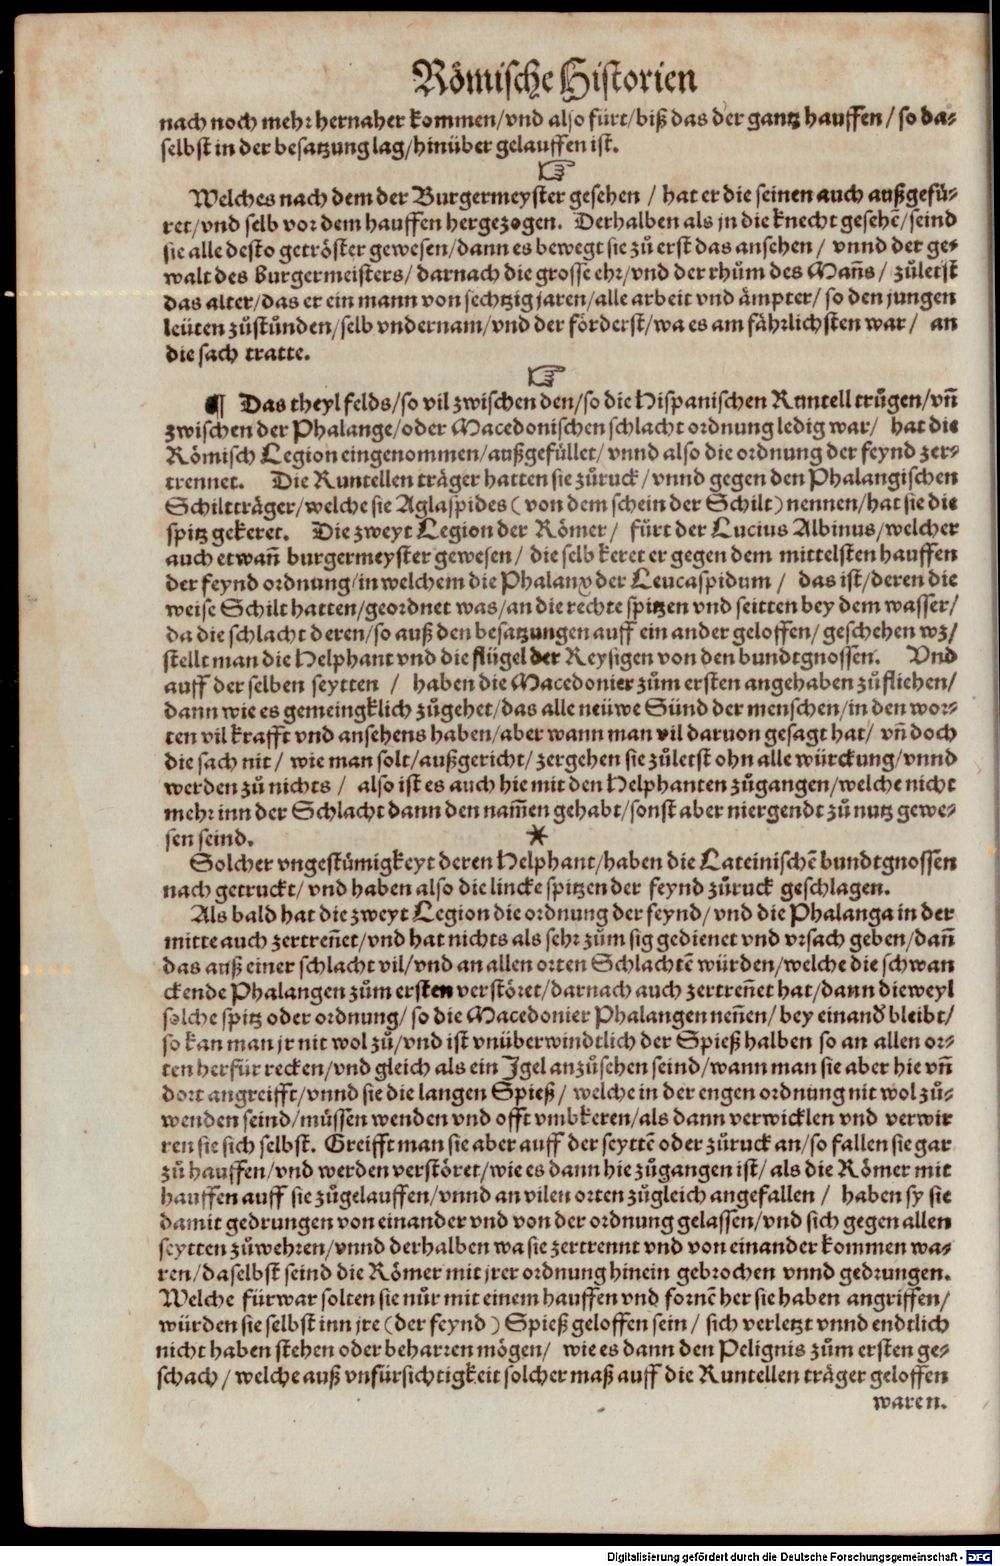 Römische Historien
nach noch mehr hernaher kommen/vnd also fürt/biß das der gantz hauffen/so da-
selbst in der besatzung lag/hinüber gelauffen ist.
☞
Welches nach dem der Burgermeyster gesehen / hat er die seinen auch außgefü-
ret/vnd selb vor dem hauffen hergezogen. Derhalben als jn die knecht gesehẽ/seind
sie alle desto getröster gewesen/dann es bewegt sie zů erst das ansehen/ vnnd der ge-
walt des Burgermeisters/darnach die grosse ehr/vnd der rhům des Mañs/ zůletst
das alter/das er ein mann von sechtzig jaren/alle arbeit vnd ämpter/ so den jungen
leüten zůstůnden/selb vndernam/vnd der förderst/wa es am fährlichsten war/ an
die sach tratte.
☞
¶ Das theyl felds/so vil zwischen den/so die Hispanischen Runtell trůgen/vñ
zwischen der Phalange/oder Macedonischen schlacht ordnung ledig war/ hat die
Römisch Legion eingenommen/außgefüllet/vnnd also die ordnung der feynd zer-
trennet. Die Runtellen träger hatten sie zůruck/vnnd gegen den Phalangischen
Schiltträger/welche sie Aglaspides (von dem schein der Schilt) nennen/hat sie die
spitz gekeret. Die zweyt Legion der Römer/ fürt der Lucius Albinus/welcher
auch etwañ burgermeyster gewesen/ die selb keret er gegen dem mittelsten hauffen
der feynd ordnung/in welchem die Phalanx der Leucaspidum/ das ist/deren die
weise Schilt hatten/geordnet was/an die rechte spitzen vnd seitten bey dem wasser/
da die schlacht deren/so auß den besatzungen auff ein ander geloffen/geschehen wz/
stellt man die Helphant vnd die flügel der Reysigen von den bundtgnossen. Vnd
auff der selben seytten / haben die Macedonier zům ersten angehaben zůfliehen/
dann wie es gemeingklich zůgehet/das alle neüwe Sünd der menschen/in den wor-
ten vil krafft vnd ansehens haben/aber wann man vil daruon gesagt hat/ vñ doch
die sach nit/ wie man solt/außgericht/zergehen sie zůletst ohn alle würckung/vnnd
werden zů nichts / also ist es auch hie mit den Helphanten zůgangen/welche nicht
mehr inn der Schlacht dann den nam̃en gehabt/sonst aber niergendt zů nutz gewe-
sen seind. *
Solcher vngestůmigkeyt deren Helphant/haben die Lateinischẽ bundtgnossen
nach getruckt/vnd haben also die lincke spitzen der feynd zůruck geschlagen.
Als bald hat die zweyt Legion die ordnung der feynd/vnd die Phalanga in der
mitte auch zertreñet/vnd hat nichts als sehr zům sig gedienet vnd vrsach geben/dañ
das auß einer schlacht vil/vnd an allen orten Schlachtẽ würden/welche die schwan
ckende Phalangen zům ersten verstöret/darnach auch zertreñet hat/dann dieweyl
solche spitz oder ordnung/so die Macedonier Phalangen neñen/bey einand bleibt/
so kan man jr nit wol zů/vnd ist vnüberwindtlich der Spieß halben so an allen or-
ten herfür recken/vnd gleich als ein Jgel anzůsehen seind/wann man sie aber hie vñ
dort angreifft/vnnd sie die langen Spieß/ welche in der engen ordnung nit wol zů-
wenden seind/müssen wenden vnd offt vmbkeren/als dann verwicklen vnd verwir
ren sie sich selbst. Greifft man sie aber auff der seyttẽ oder zůruck an/so fallen sie gar
zů hauffen/vnd werden verstöret/wie es dann hie zůgangen ist/als die Römer mit
hauffen auff sie zůgelauffen/vnnd an vilen orten zůgleich angefallen/ haben sy sie
damit gedrungen von einander vnd von der ordnung gelassen/vnd sich gegen allen
seytten zůwehren/vnnd derhalben wa sie zertrennt vnd von einander kommen wa-
ren/daselbst seind die Römer mit jrer ordnung hinein gebrochen vnnd gedrungen.
Welche fürwar solten sie nůr mit einem hauffen vnd fornẽ her sie haben angriffen/
würden sie selbst inn jre (der feynd) Spieß geloffen sein/ sich verletzt vnnd endtlich
nicht haben stehen oder beharren mögen/ wie es dann den Pelignis zům ersten ge-
schach/welche auß vnfürsichtigkeit solcher maß auff die Runtellen träger geloffen
waren.
Digitalisierung gefördert durch die Deutsche Forschungsgemeinschaft - DFG